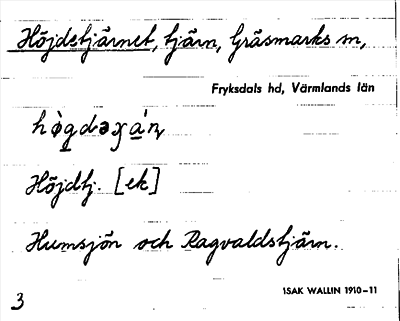 Höjdetjärnet, tjärn, Gräsmarks sn,
Fryksdals hd, Värmlands län
Höjdtj. [ek]
Humsjön och Ragvaldstjärn.
3
ISAK WALLIN 1910-11